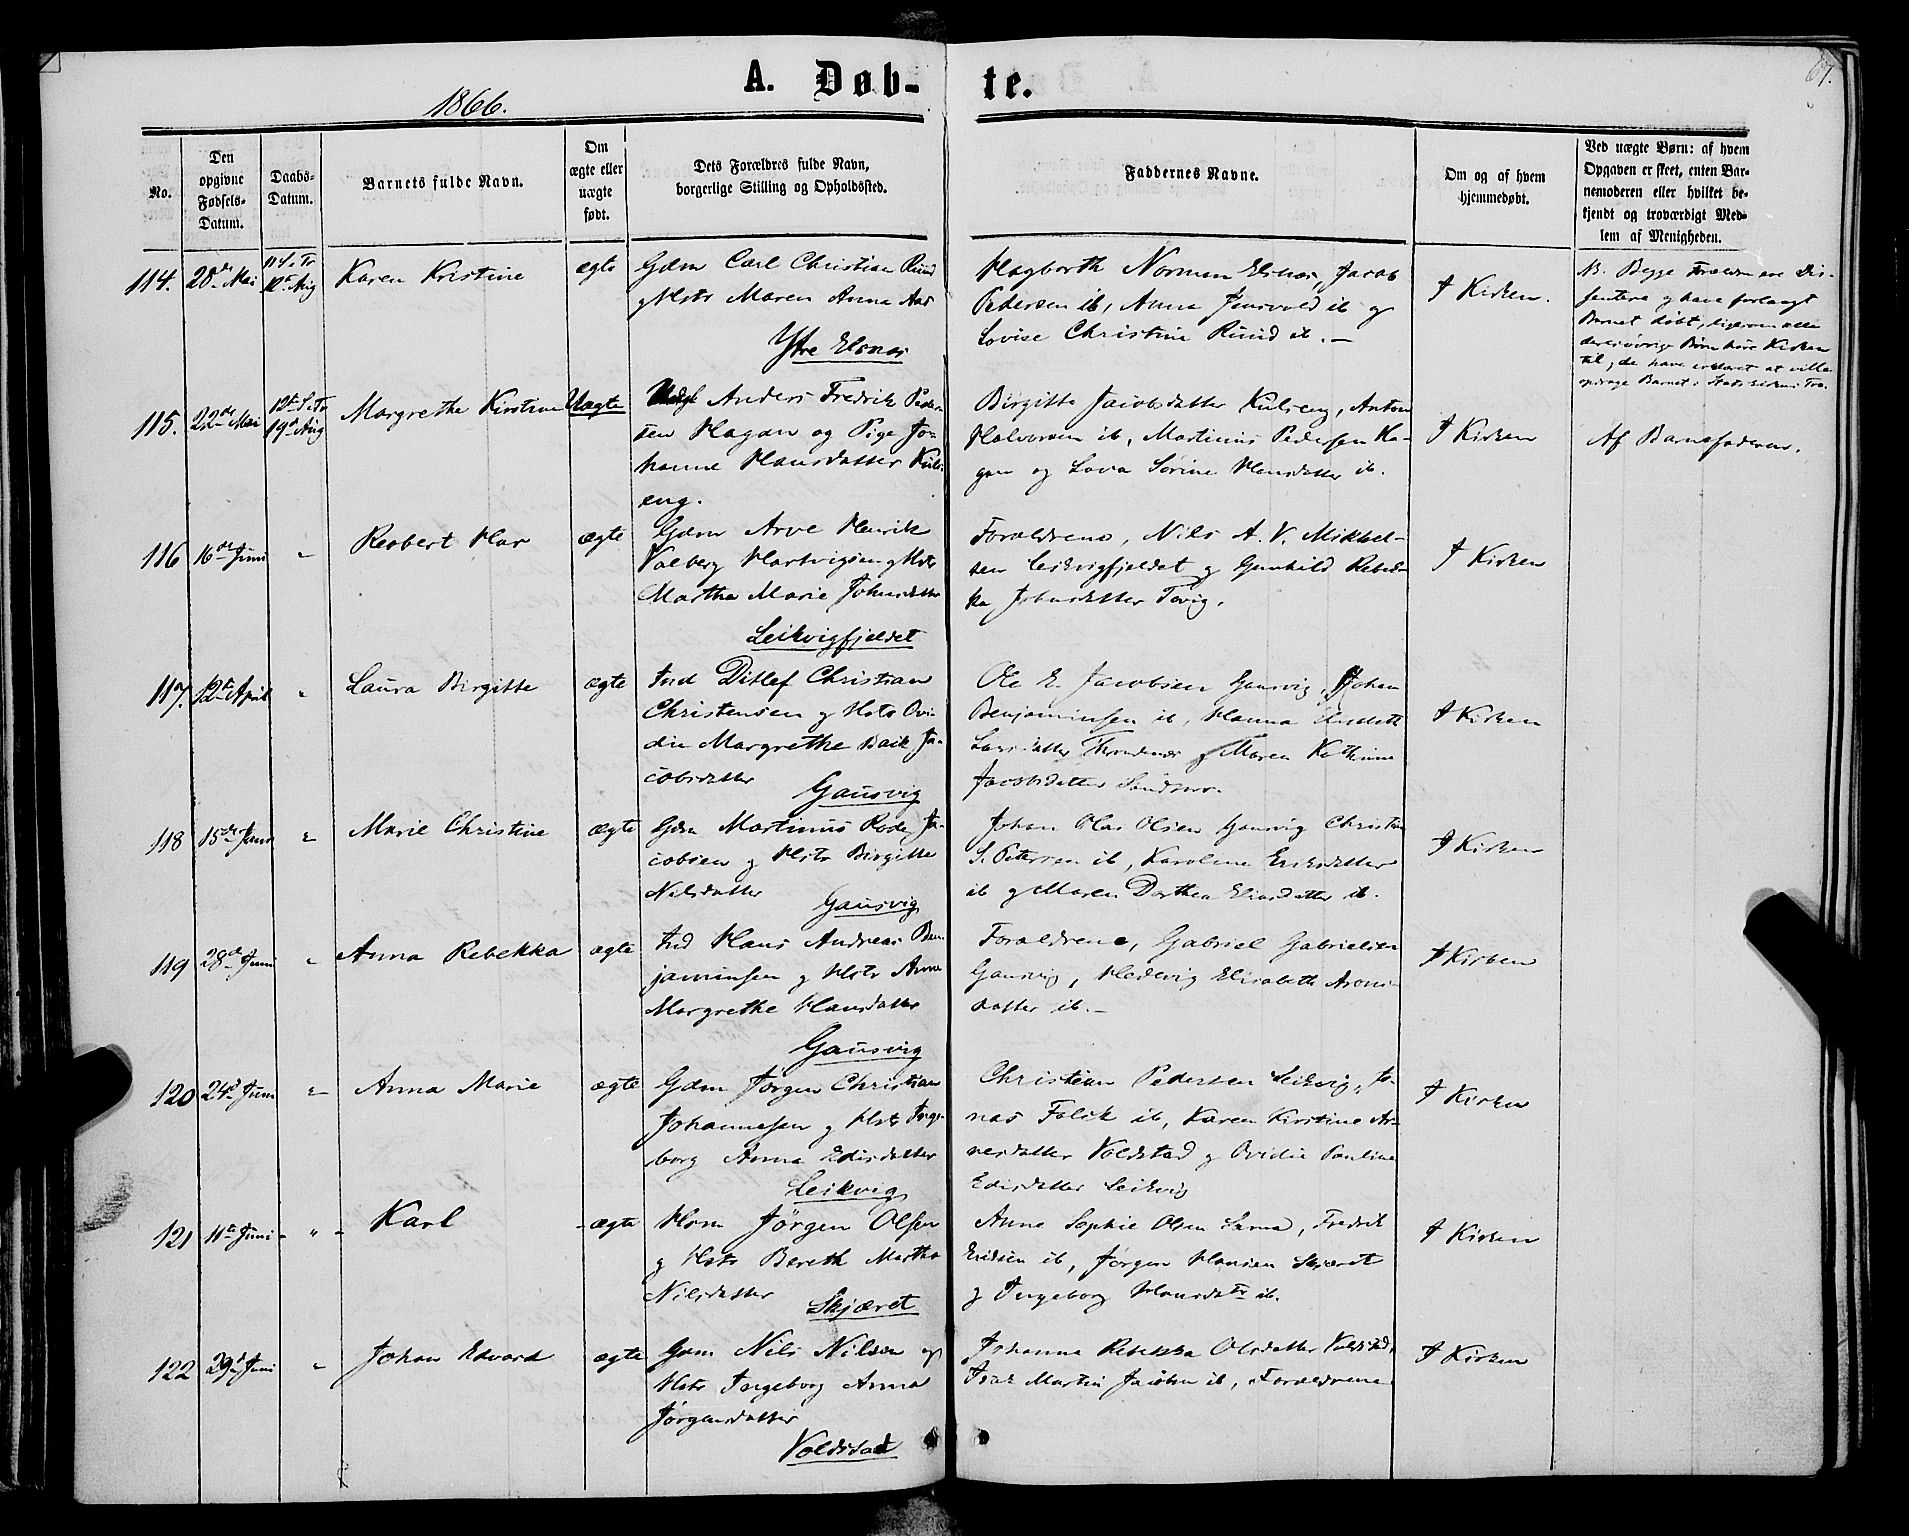 67.
1866.
A. Døb-
te.
No.
Den
opgivne
Fødsels-
Datum.
Daabs-
Datum.
Barnets fulde Navn.
Om
ægte eller
uægte
født.
Dets Forældres fulde Navn,
borgerlige Stilling og Opholdssted.
Faddernes Navne.
Om og af hvem
hjemmedøbt.
Ved uægte Børn: af hvem
Opgaven er skeet, enten Bar-
nemoderen eller hvilket be-
kjendt og troværdigt Med-
lem af Menigheden.
114.
28de Mai
12te Aug
Karen Kristine
ægte
Gdm Carl Christian Ruud
og Hstr Maren Anna Aas
Ytre Elsnes
Hagbarth Norman Elsnes, Jacob
Pedersen ib, Anna Jensvold ib og
Lovise Christine Ruud ib.
I Kirken.
NB. Begge Forældre ere Dis-
sentere og have forlangt
Barnet døbt, ligesom alle
deres øvrige Børn høre Kirken
til; de have erklæret at ville
opdrage Barnet i Statskirkens Tro.
115.
22de Mai
12te S. e Tr
19de Aug
Margrethe Kirstine
Uægte
Anders Fredrik Peder-
sen Hagan og Pige Jo-
hanne Hansdatter Kuls-
eng.
Birgitte Jacobsdatter Kulseng, Anton
Halvorsen ib, Martinus Pedersen Ha-
gan og Lava Sørine Hansdatter ib.
I Kirken
Af Barnefaderen.
116
16de Juni
"
Reobert Har
ægte
Gdm Arve Henrik
Valberg Hartvigsen og Hstr
Martha Marie Johnsdatter
Leikvigfjeldet
Forældrene, Nils A. V. Mikkel-
sen Leikvigfjeldet og Gunhild Rebek-
ka Johnsdatter Tovig.
I Kirken
117.
12te April
"
Laura Birgitte
ægte
Ind Ditlef Christian
Christensen og Hstr Ovi-
die Margrethe Baik Ja-
cobsdatter
Gausvig
Ole E. Jacobsen Gausvig, Johan
Benjaminsen ib, Hanna
Larsdatter Throndenæs og Maren Kathrine
Jacobsdatter Sandsør.
I Kirken
118
15de Juni
"
Marie Christine
ægte
Gdm Martinus Rode Ja-
cobsen og Hstr Birgitte
Nilsdatter
Gausvig
Johan Olai Olsen Gausvig Christian
S. Petersen ib, Karoline Eriksdatter
ib og Maren Dorthea Eliasdatter ib.
I Kirken
119
28de Juni
"
Anna Rebekka
ægte
Ind Hans Andreas Ben-
jaminsen og Hstr Anne
Margrethe Hansdatter
Gausvig
Forældrene, Gabriel Gabrielsen
Gausvig, Hedevig Elisabeth Arons-
datter ib.
I Kirken
120
24de Juni
"
Anna Marie
ægte
Gdm Jørgen Christian
Johannesen og Hstr Inge-
borg Anna Edisdatter
Leikvig
Christian Pedersen Leikvig, Jo-
nas Falck ib, Karen Kirstine Ar-
nesdatter Voldstad og Ovidie Pauline
Edisdatter Leikvig
I Kirken
121
11te Juni
"
Karl
ægte
Hsm Jörgen Olsen
og Hstr Bereth Martha
Nilsdatter
Skjæret
Anne Sophie Olsen Sama, Fredrik
Eriksen ib, Jørgen Hansen Skjæret
og Ingeborg Hansdatr ib.
I Kirken
122
29de Juni
"
Johan Edvard
ægte
Gdm Nils Nilsen og
Hstr Ingeborg Anna
Jørgensdatter
Voldstad
Johanna Rebekka Olsdatter Voldstad,
Isak Martin Jacobsen ib, Forældrene
I Kirken